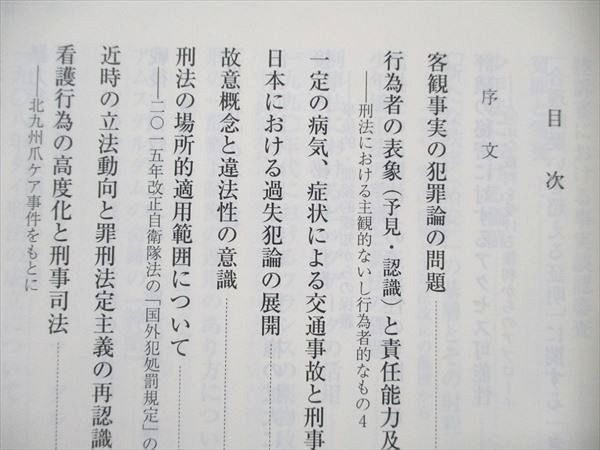 目次
序文
客観事実の犯罪論の問題
行為者の表象（予見・認識）と責任能力及
――刑法における主観的ないし行為者的なもの4
一定の病気、症状による交通事故と刑事
日本における過失犯論の展開
故意概念と違法性の意識
刑法の場所的適用範囲について
――二〇一五年改正自衛隊法の「国外犯処罰規定」の
近時の立法動向と罪刑法定主義の再認識
看護行為の高度化と刑事司法
――北九州爪ケア事件をもとに